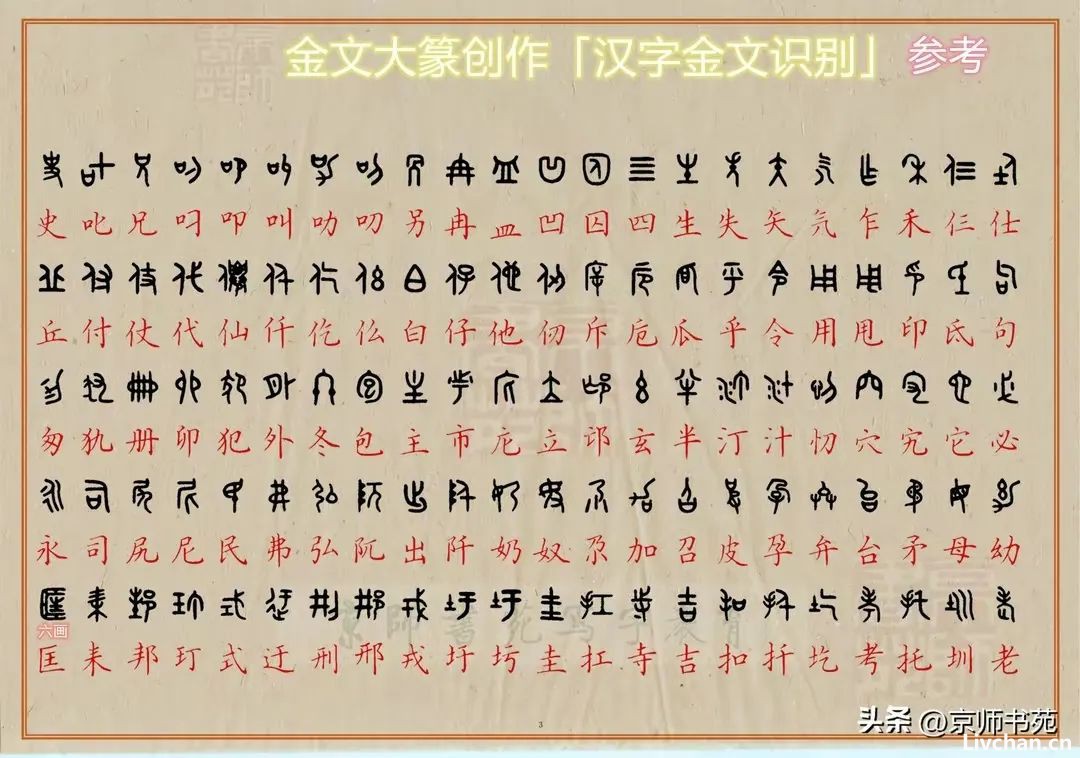 金文大篆创作「汉字金文识别」 参考
史 叱 兄 叼 叩 叫 叻 叨 另 冉 皿 凹 囚 四 生 失 矢 气 乍 禾 仨 仕
丘 付 仗 代 仙 仟 仡 仫 白 仔 他 仞 斥 卮 瓜 乎 令 用 甩 印 氐 句
匆 犰 册 卯 犯 外 冬 包 主 市 庀 立 邙 玄 半 汀 汁 忉 穴 宄 它 必
永 司 尻 尼 民 弗 弘 阢 出 阡 奶 奴 尕 加 召 皮 孕 弁 台 矛 母 幼
六画
匡 耒 邦 玎 式 迂 刑 邢 戎 圩 圬 圭 扛 寺 吉 扣 扦 圪 考 托 圳 老
京师书苑写字教育
3
头条 @京师书苑
Livchan.cn